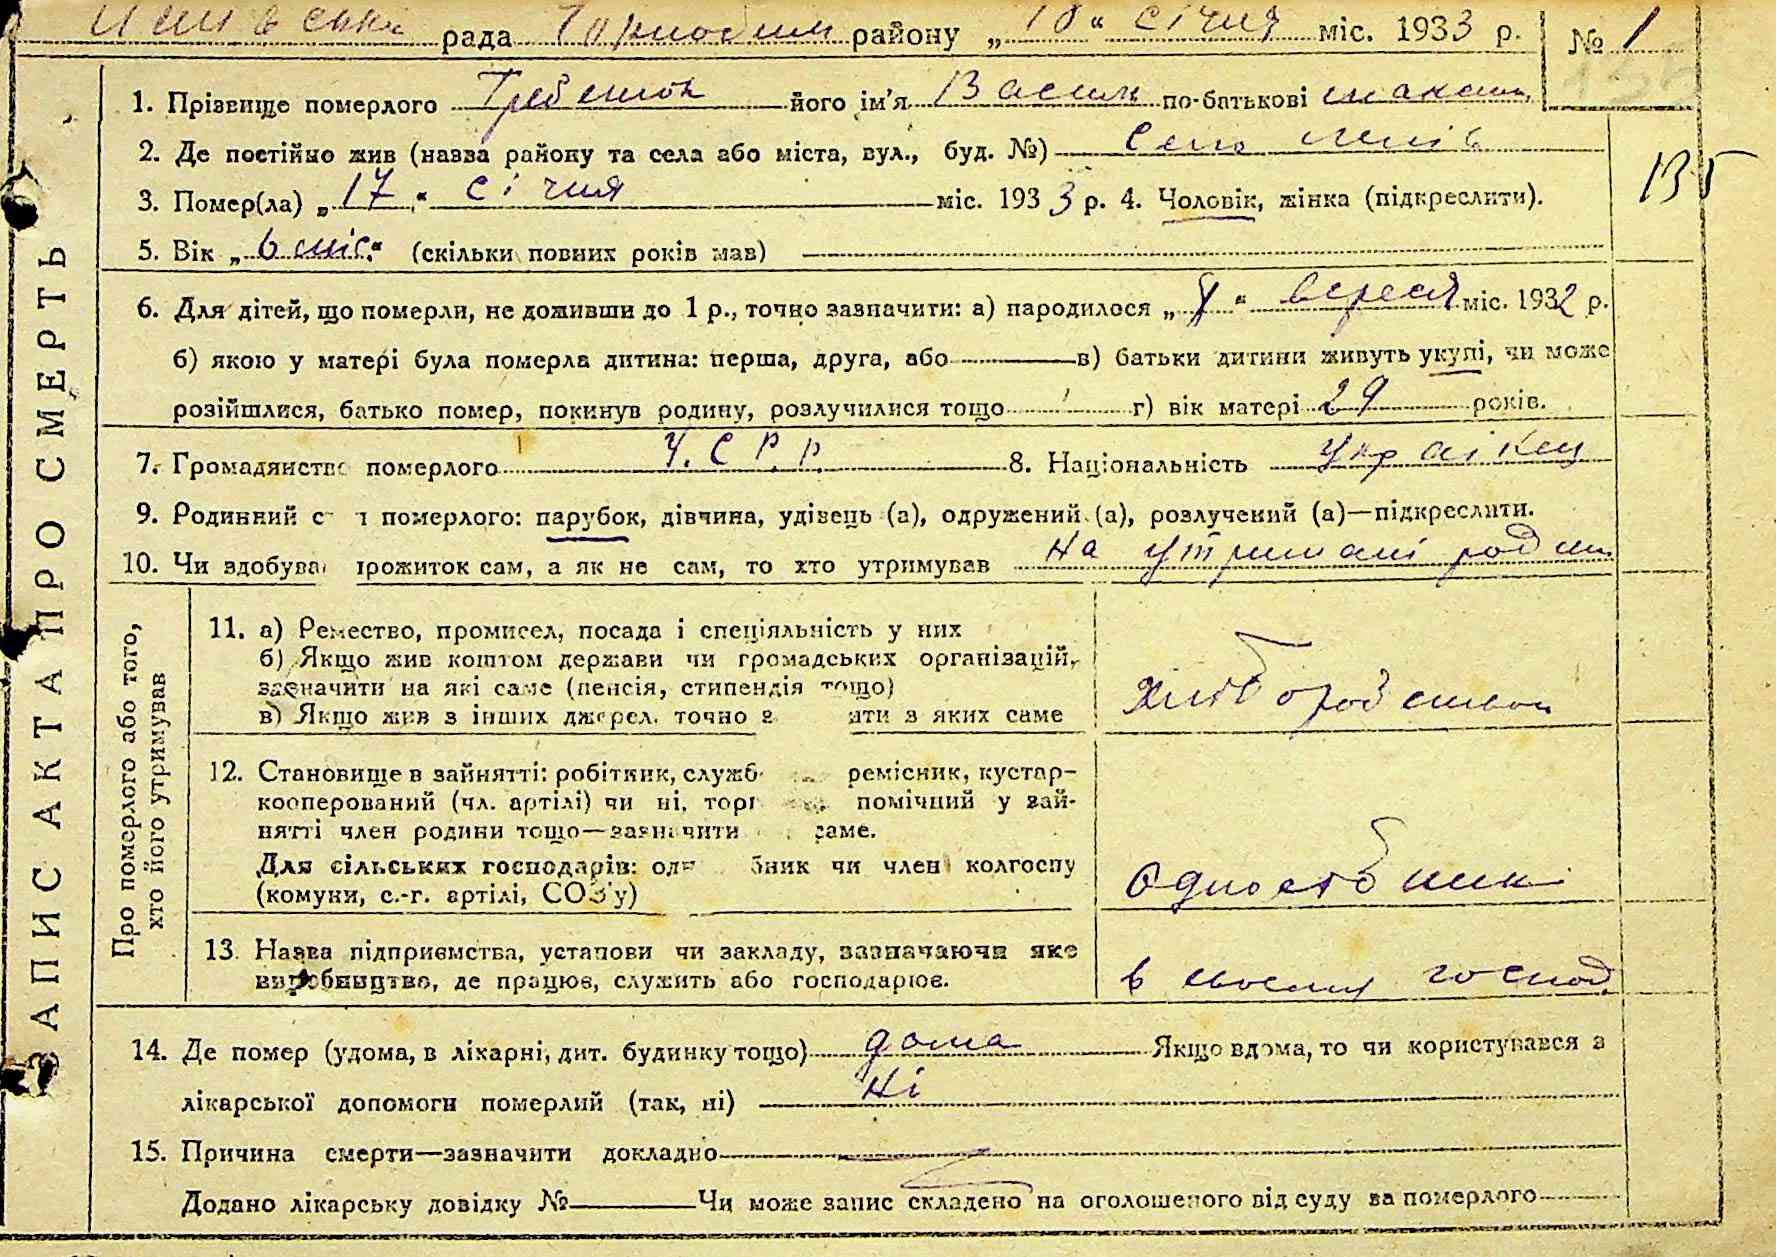 рада району „ 18 “ січня міс. 1933 р. № 1
1. Прізвище померлого Гребенюк його ім'я Василь по-батькові
2. Де постійно жив (назва району та села або міста, вул., буд. №) Село
135
3. Помер(ла) „ 17 “ січня міс. 1933 р. 4. Чоловік, жінка (підкреслити).
5. Вік „ 6 міс. “ (скільки повних років мав)
6. Для дітей, що померли, не доживши до 1 р., точно зазначити: а) народилося „ “ вересня міс. 1932 р.
б) якою у матері була померла дитина: перша, друга, або в) батьки дитини живуть укупі, чи може
розійшлися, батько помер, покинув родину, розлучилися тощо г) вік матері 29 років.
7. Громадянство померлого У.С.Р.Р. 8. Національність Українец
9. Родинний с н померлого: парубок, дівчина, удівець (а), одружений (а), розлучений (а)—підкреслити.
10. Чи здобував прожиток сам, а як не сам, то хто утримував на утримані родини
ЗАПИС АКТА ПРО СМЕРТЬ
Про померлого або того,
хто його утримував
11. а) Ремество, промисел, посада і спеціяльність у них
б) Якщо жив коштом держави чи громадських організацій,
зазначити на які саме (пенсія, стипендія тощо)
в) Якщо жив з інших джерел, точно з ати з яких саме
хлібороб
12. Становище в зайнятті: робітник, служб ремісник, кустар-
кооперований (чл. артілі) чи ні, торг помічний у зай-
нятті член родини тощо—зазначити саме.
Для сільських господарів: одн бник чи член колгоспу
(комуни, с.-г. артілі, СОЗ'у)
одноосібник
13. Назва підприємства, установи чи закладу, зазначаючи яке
виробництво, де працює, служить або господарює.
в своєму господ.
14. Де помер (удома, в лікарні, дит. будинку тощо) дома Якщо вдома, то чи користувався з
лікарської допомоги померлий (так, ні) ні
15. Причина смерти—зазначити докладно
Додано лікарську довідку № Чи може запис складено на оголошеного від суду за померлого